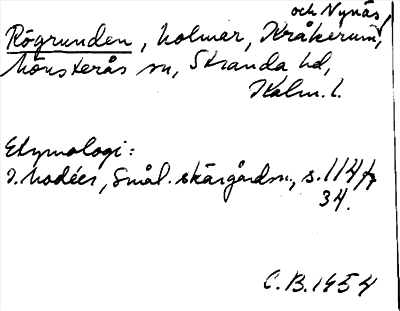 och Nynäs,
Rögrunden, holmar, Kråkerum,
Mönsterås sn, Stranda hd,
Kalm. l.
Etymologi:
I. Modéer, Smål. skärgårdsn., s. 114 fr
34.
C.B. 1954